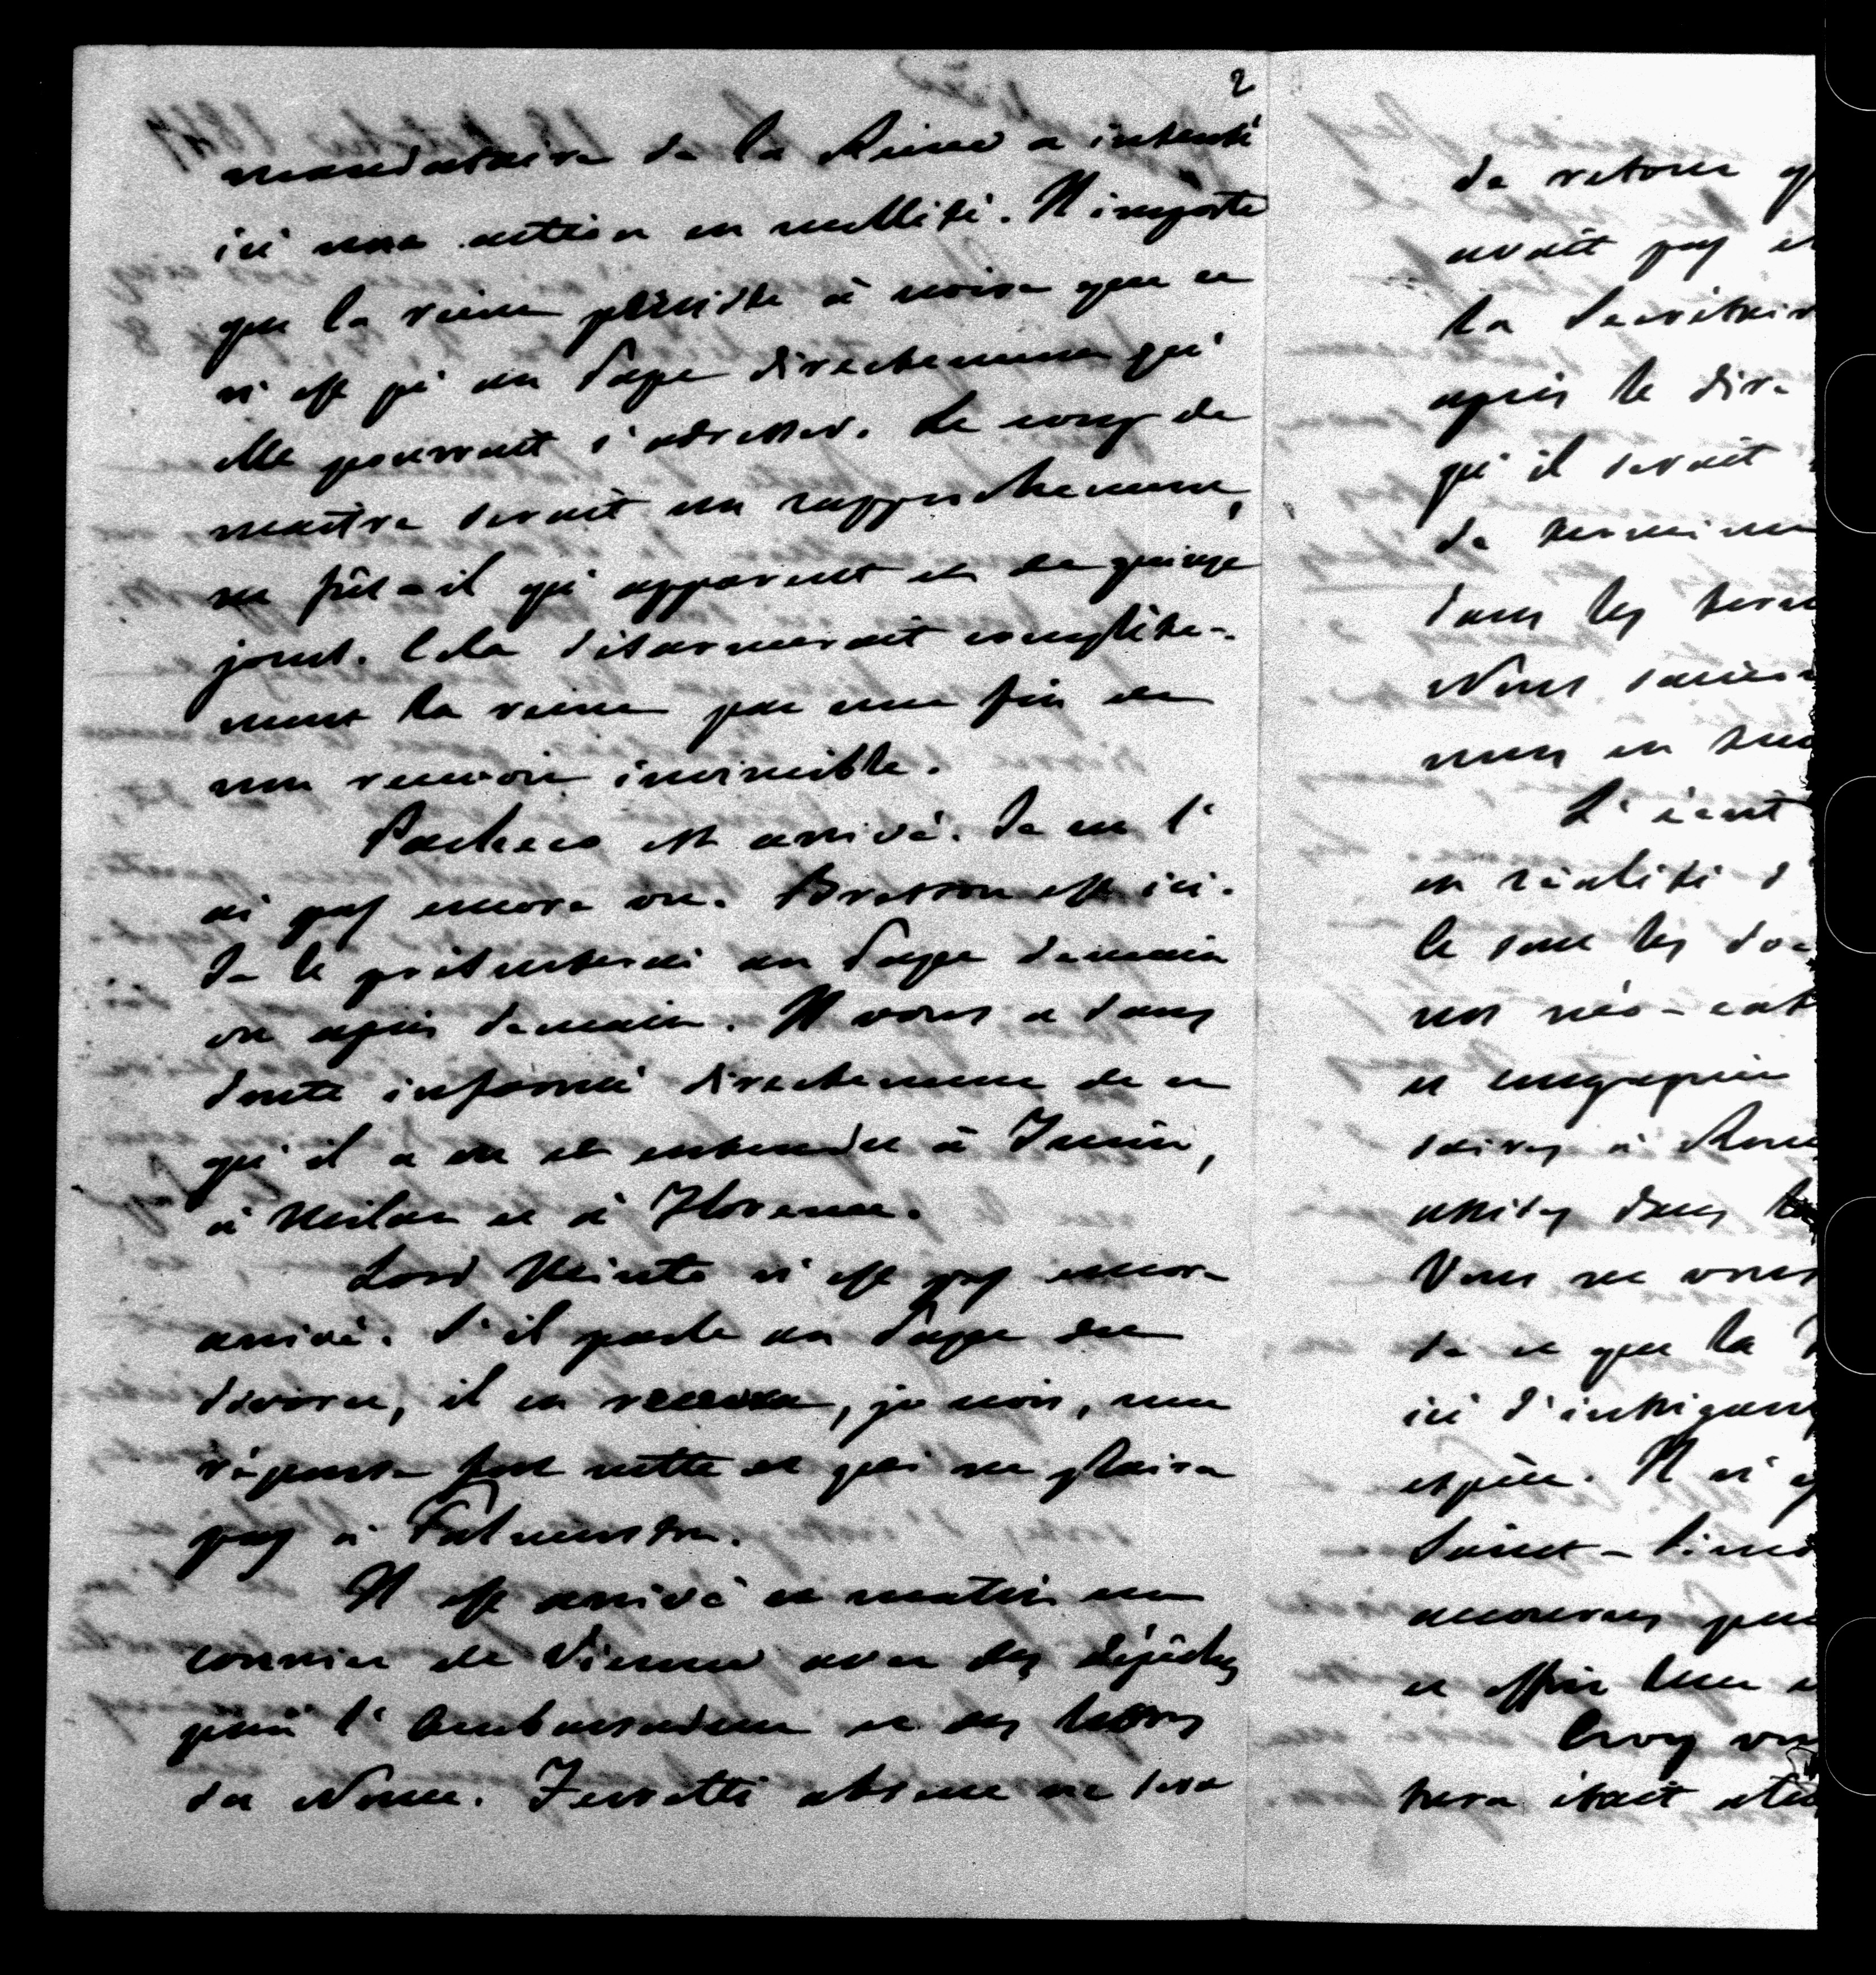 2
mandataire de la Reine a intenté
ici une action en nullité. Il importe
que la reine persiste à croire que ce
n'est qu'au Pape directement qu'
elle pourrait s'adresser. Le coup de
maître serait un rapprochement,
ne fût-il qu'apparent et de quinze
jours. Cela désarmerait complète-
ment la reine par une fin de
non recevoir invincible.
Pacheco est arrivé. Je ne l'
ai pas encore vu. Bresson est ici.
Je le présenterai au Pape demain
ou après demain. Il vous a sans
doute informé directement de ce
qu'il a vu et entendu à Turin,
à Milan et à Florence.
Lord Minto n'est pas encore
arrivé. S'il parle au Pape du
divorce, il en recevra, je crois, une
réponse fort nette et qui ne plaira
pas à Palmerston.
Il est arrivé ce matin un
courrier de Vienne avec des dépêches
pour l'Ambassadeur et des lettres
du Nonce. Ferretti absent ne sera
de retour
avait pas
la Secrétair
après le dire
qu'il serait
de
dans les
Nous
mais en
L'écrit
en réalité d
le sous les
nos néo-cat
et
saires à Rome
dans
Vous ne vous
de ce que la
ici d'intrigans
espèce. Il n'y
Saint-Simo
accourus pour
et offrir leur
Croy
était